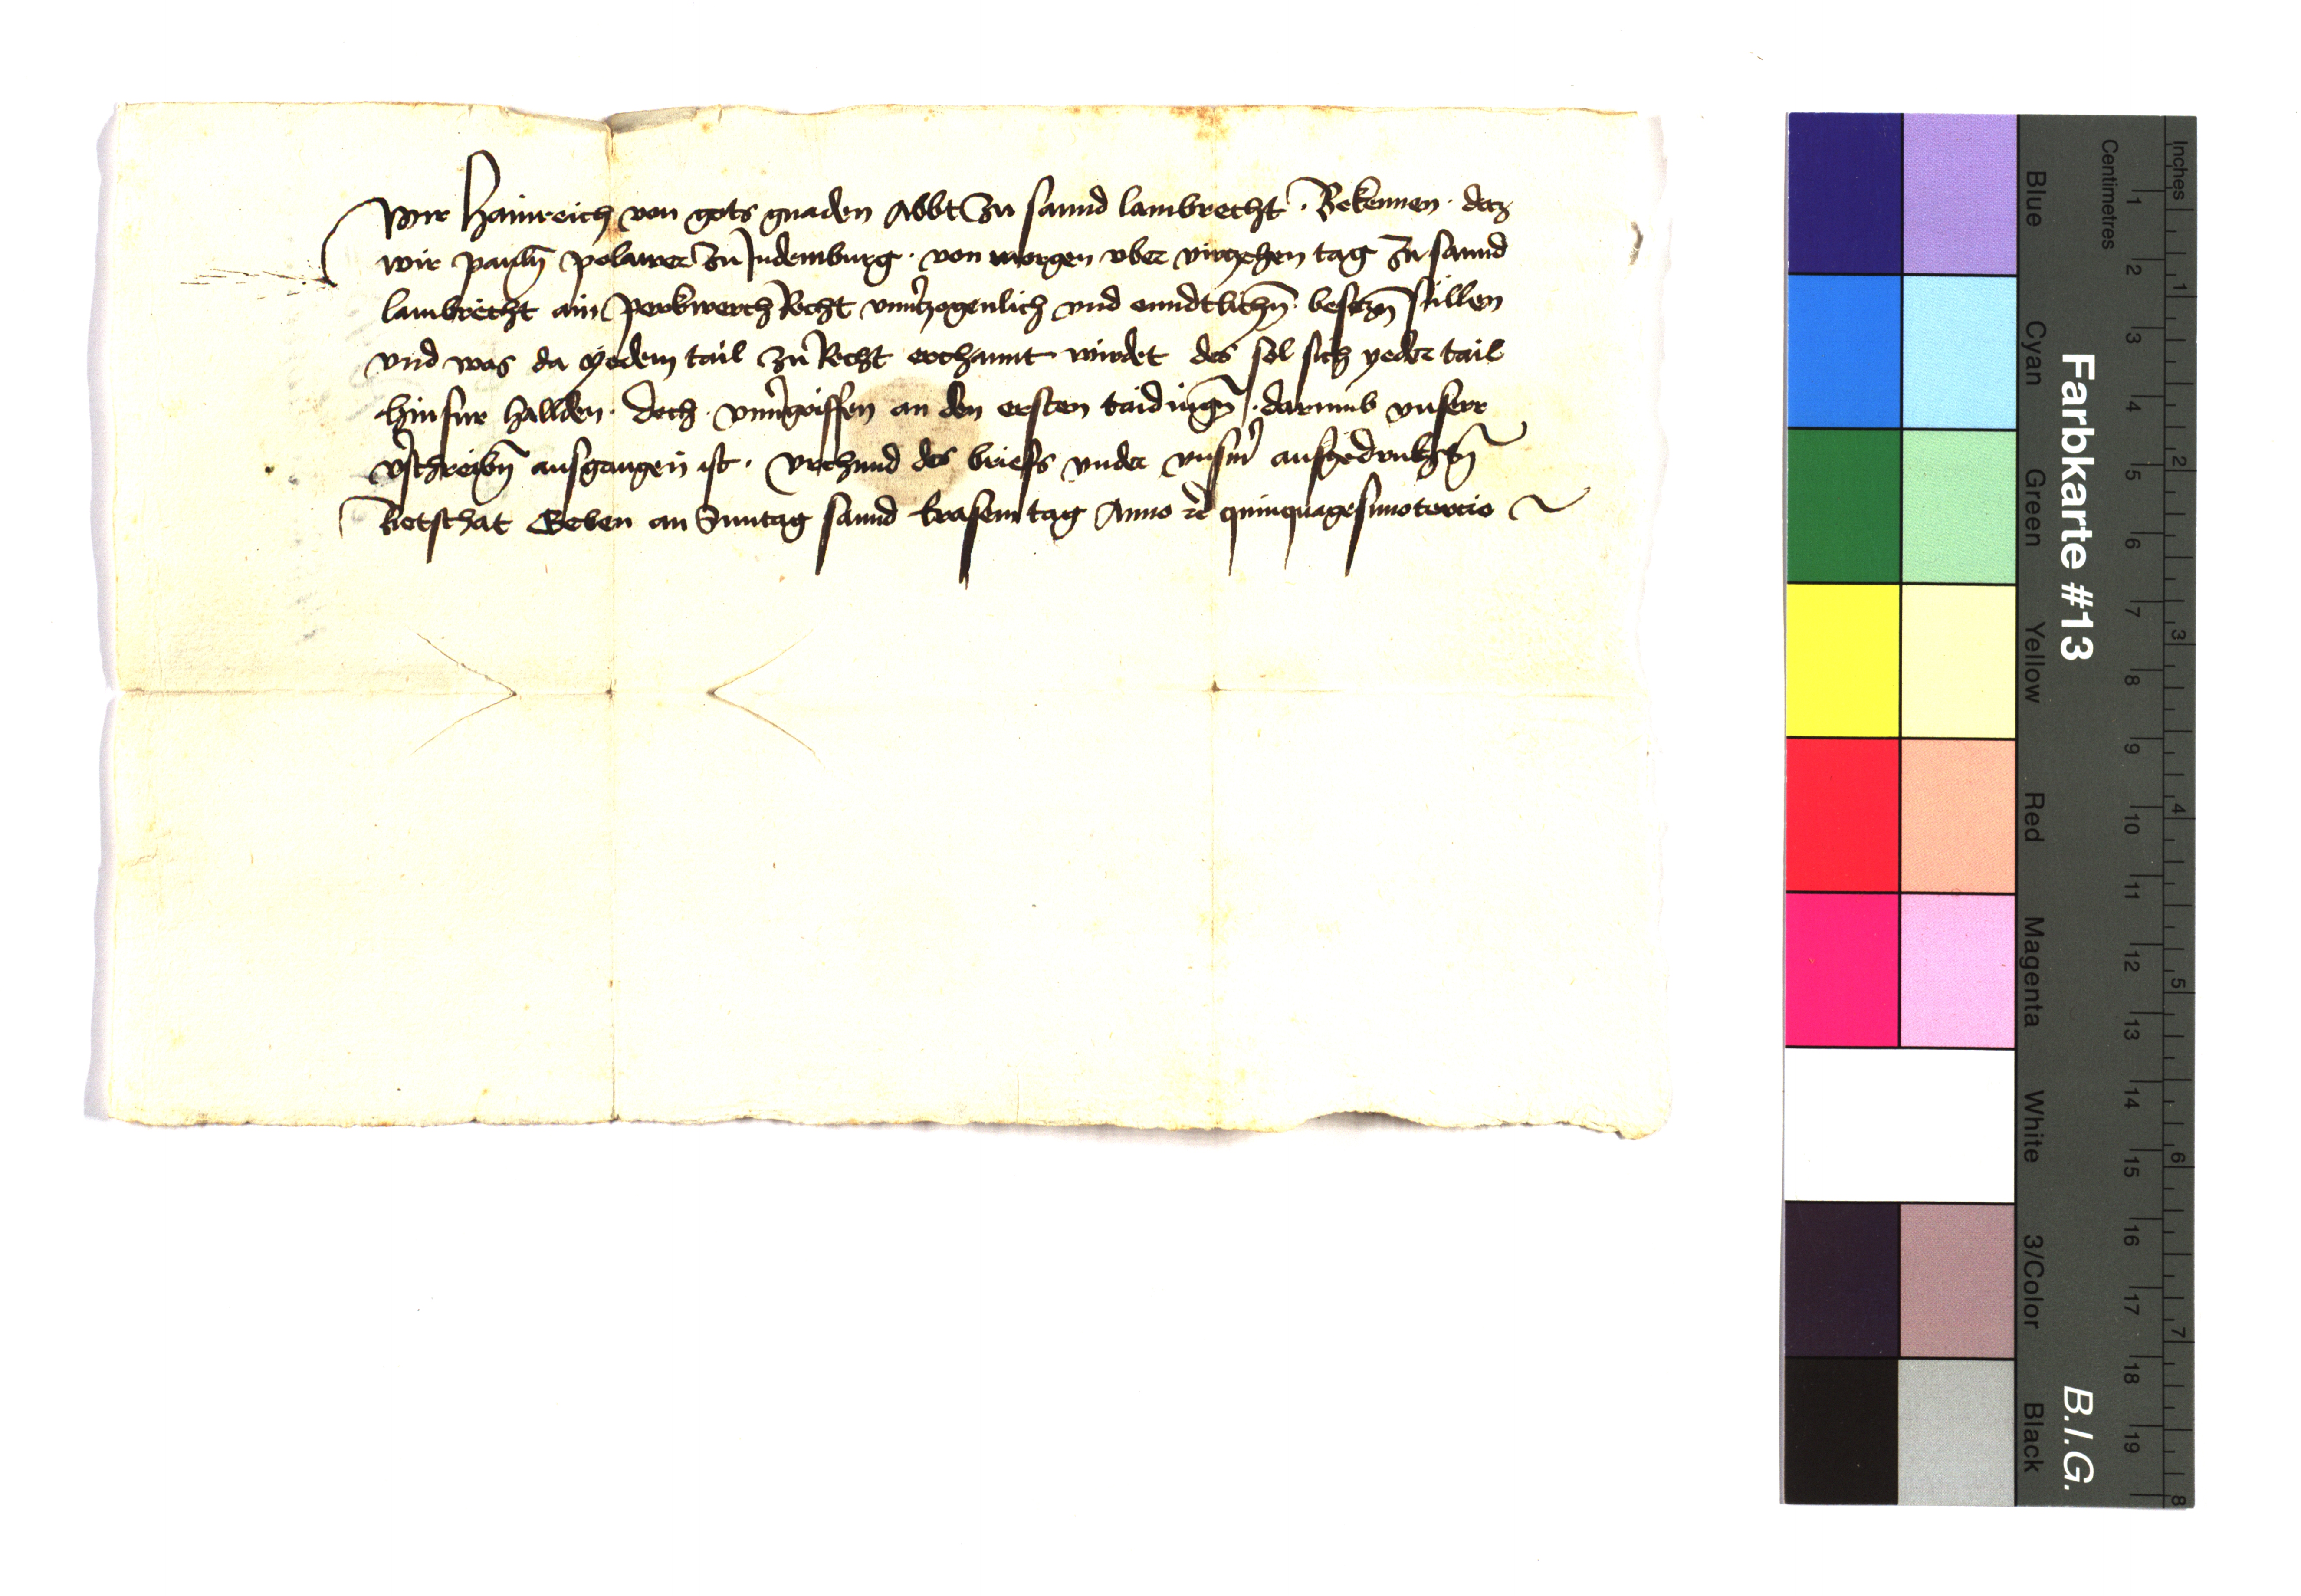 Wir Hainreich von gots gnaden Abbt zu sannd lambrecht · Bekennen · daz
wir pauln̄ polawer zu Judemburg · von morgen vber virzehen tag zu sannd
lambrecht ain perkwerch Recht vnu͛tzogenlich vnd enndtlichn̄ beseczn̄ sullen
vnd was da yedem tail zu Recht erchannt wirdet des sol sich yeder tail
hinfur hallden · doch · vnu͛griffen an den ersten taidingn̄ · darumb vnserr
v͛schreibn̄ ausgangen ist · vrchund des briefs vnder vnsm͛ aufgedrukchtn̄
Petschat Geben an Suntag sannd Erasem tag Anno etc̄ quinquagesimotercio
Farbkarte #13
B.I.G.
Centimetres
Inches
Blue
Cyan
Green
Yellow
Red
Magenta
White
3/Color
Black
1 2 3 4 5 6 7 8 9 10 11 12 13 14 15 16 17 18 19
1 2 3 4 5 6 7 8